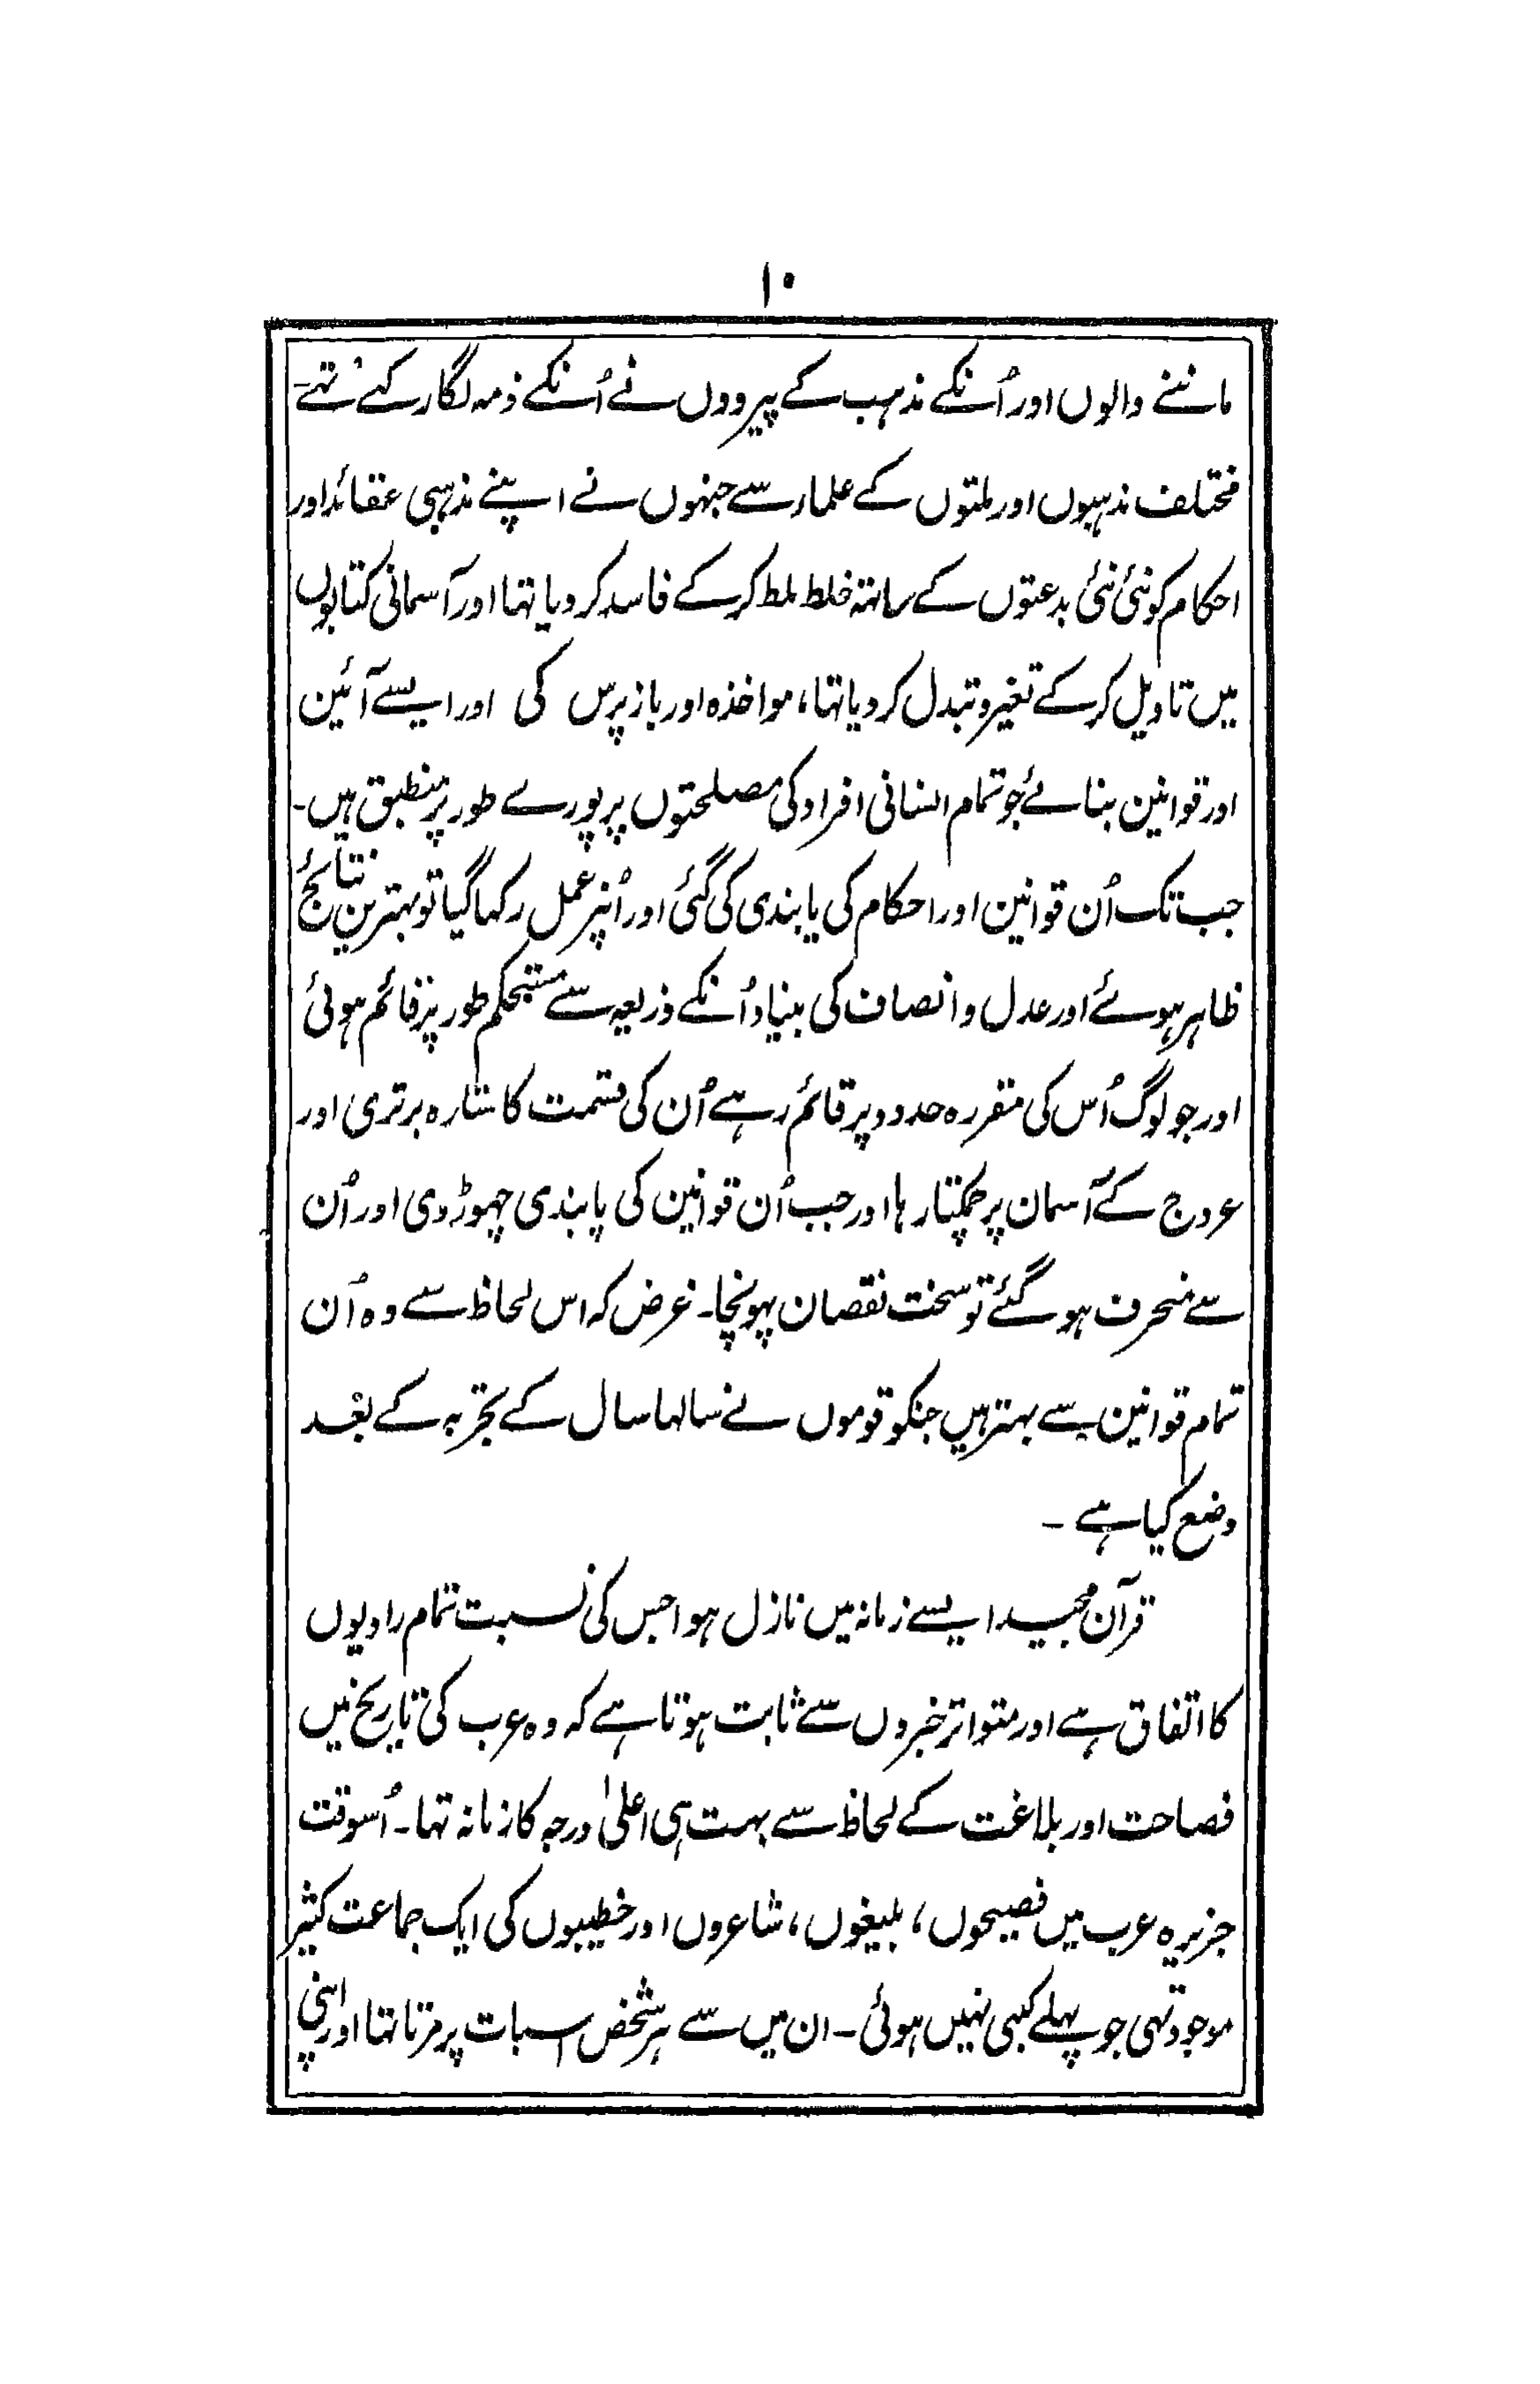 ۱۰
ماننے والوں اور اُنکے مذہب کے پیرووں نے اُنکے ذمہ لگا رکہے تہے۔
مختلف مذہبوں اور ملتوں کے علماء سے جنہوں نے اپنے مذہبی عقائد اور
احکام کو نئی نئی بدعتوں کے ساتہہ خلط ملط کر کے فاسد کر دیا تہا اور آسمانی کتابوں
میں تاویل کر کے تغیر و تبدل کر دیا تہا، مواخذہ اور باز پرس کی اور ایسے آئین
اور قوانین بنائے جو تمام انسانی افراد کی مصلحتوں پر پورے طور پر منطبق ہیں۔
جب تک اُن قوانین اور احکام کی پابندی کی گئی اور اُنپر عمل رکہا گیا تو بہترین نتائج
ظاہر ہوئے اور عدل و انصاف کی بنیاد اُنکے ذریعہ سے مستحکم طور پر قائم ہوئی
اور جو لوگ اُس کی مقررہ حدود پر قائم رہے اُن کی قسمت کا ستارہ برتری اور
عروج کے آسمان پر چمکتا رہا اور جب اُن قوانین کی پابندی چہوڑ دی اور اُن
سے منحرف ہو گئے تو سخت نقصان پہونچا۔ غرض کہ اس لحاظ سے وہ اُن
تمام قوانین سے بہتر ہیں جنکو قوموں نے سالہا سال کے تجربہ کے بعد
وضع کیا ہے ۔
قرآن مجید ایسے زمانہ میں نازل ہوا جس کی نسبت تمام راویوں
کا اتفاق ہے اور متواتر خبروں سے ثابت ہوتا ہے کہ وہ عرب کی تاریخ میں
فصاحت اور بلاغت کے لحاظ سے بہت ہی اعلیٰ درجہ کا زمانہ تہا۔ اُسوقت
جزیرہ عرب میں فصیحوں، بلیغوں، شاعروں اور خطیبوں کی ایک جماعت کثیر
موجود تہی جو پہلے کبہی نہیں ہوئی۔ ان میں سے ہر شخص اسبات پر مرتا تہا اور اپنی